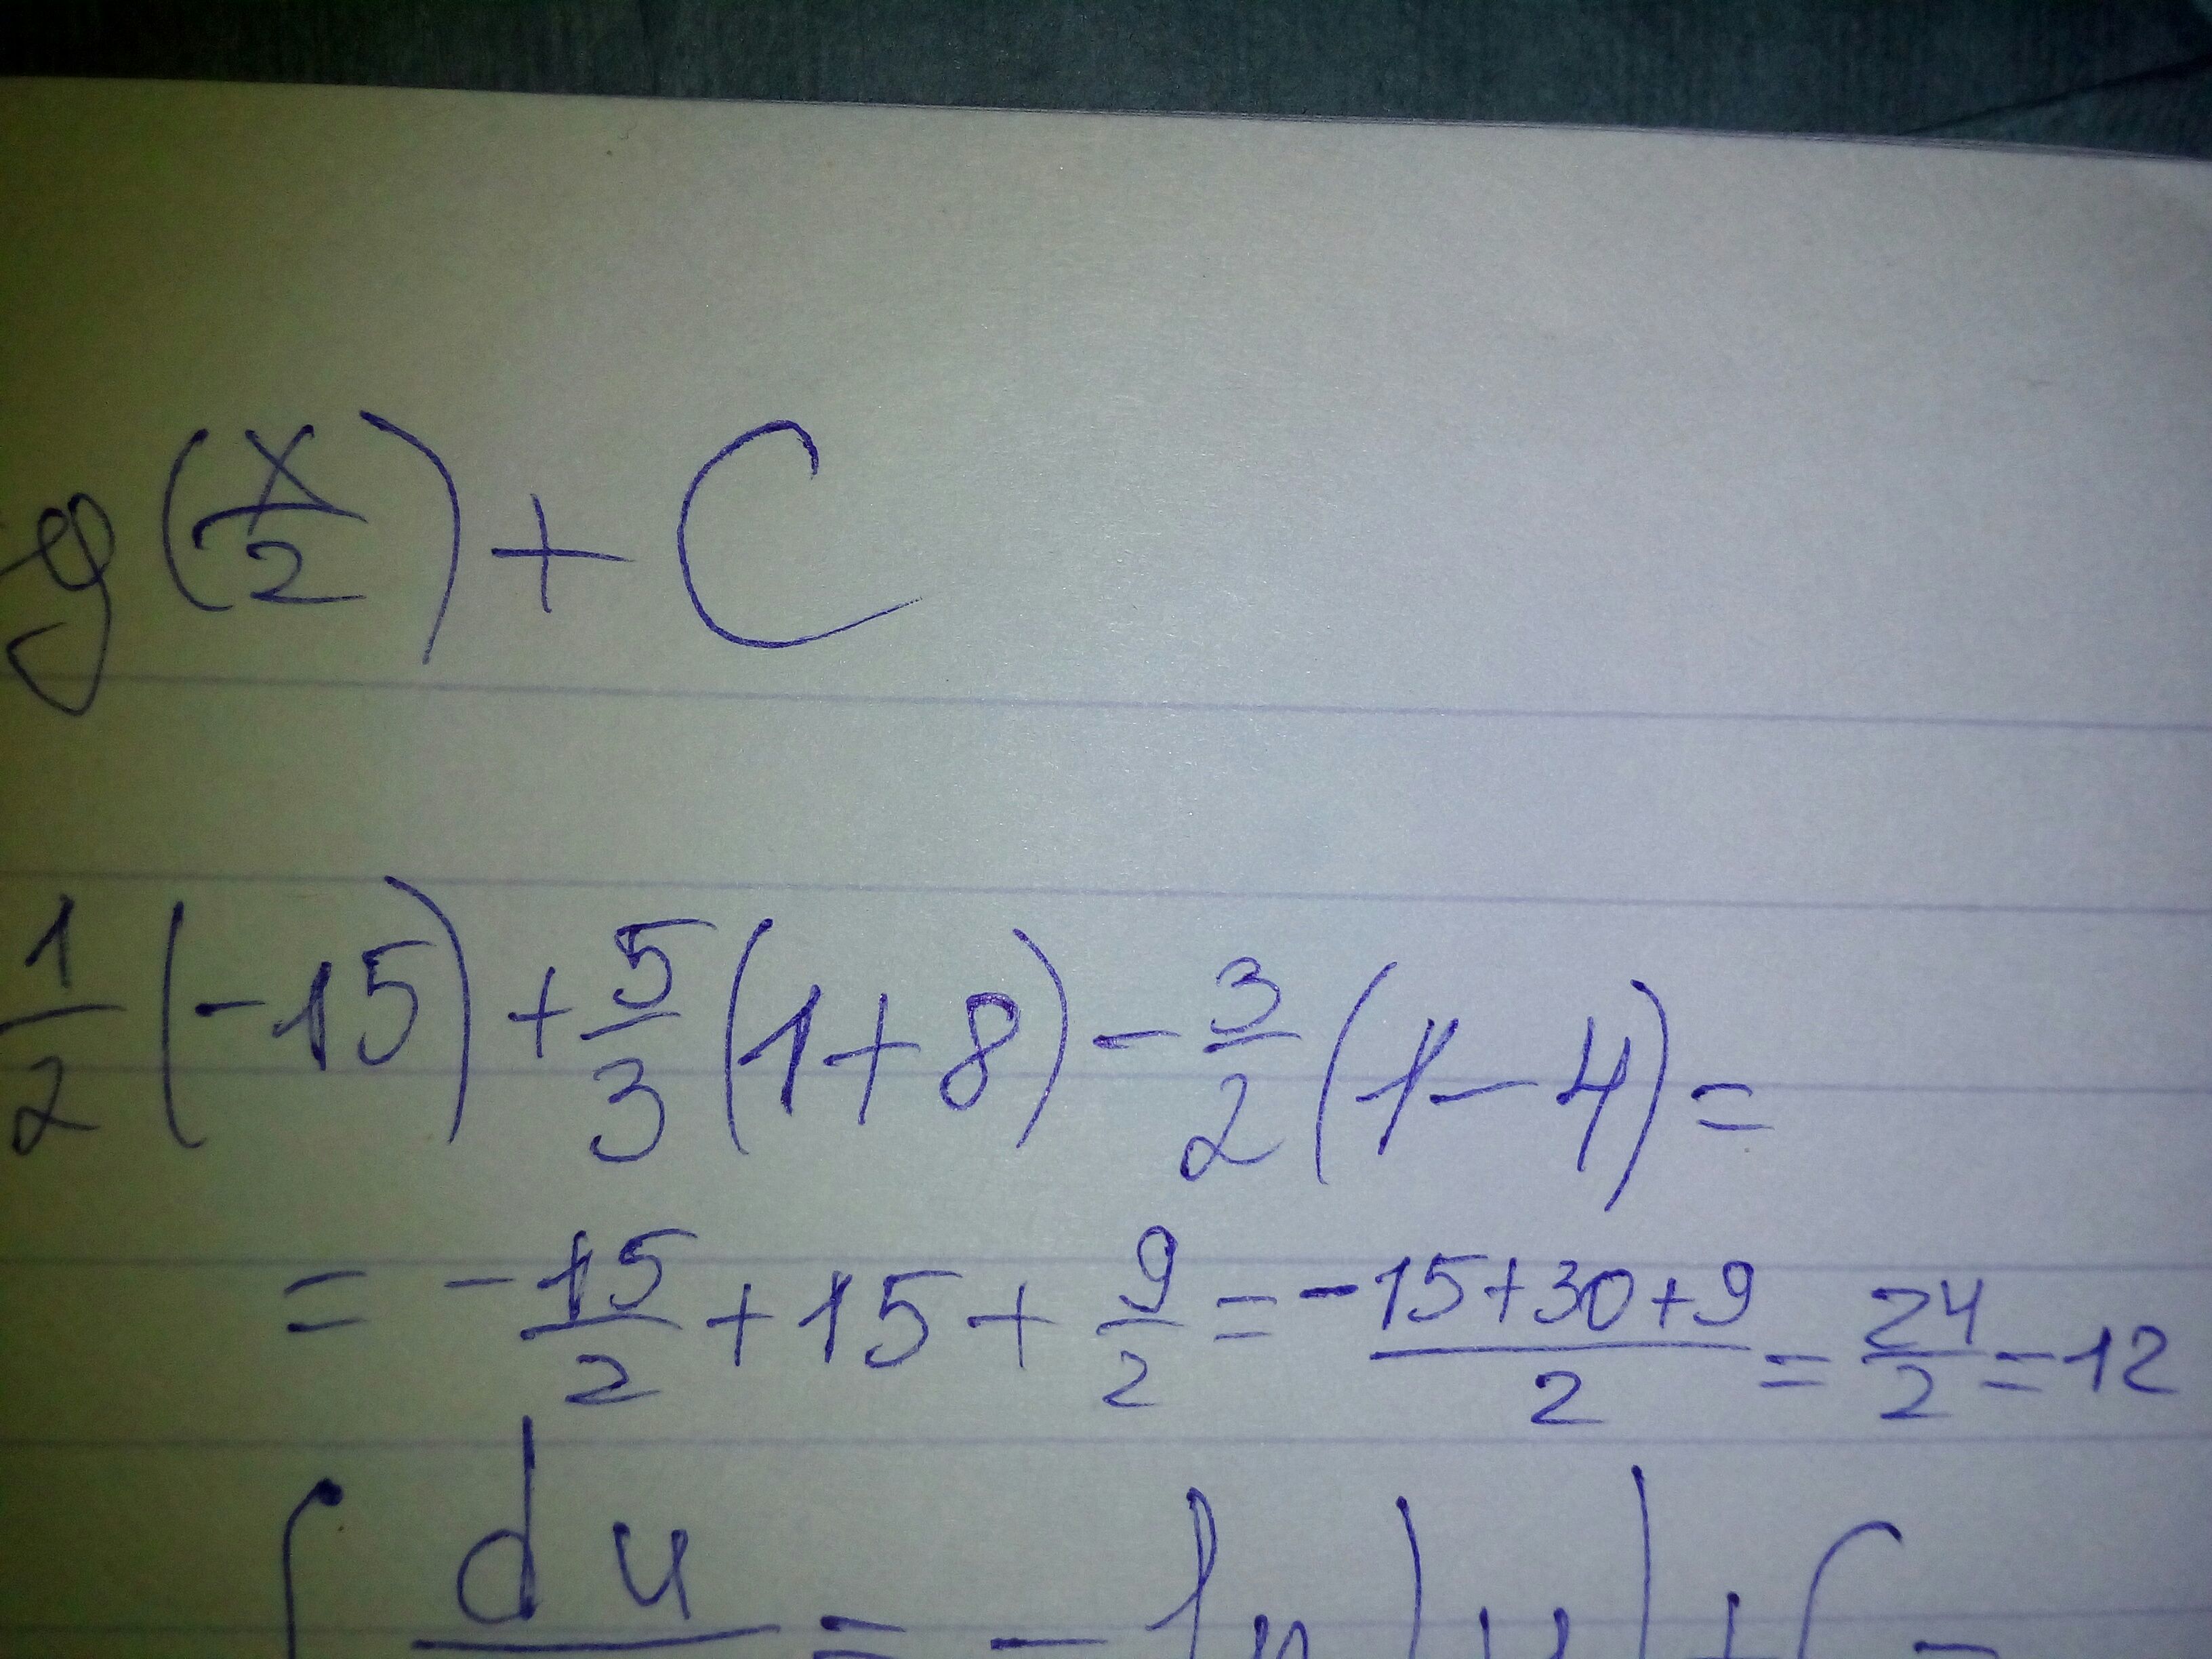 g(x/2) + C
1/2 (-15) + 5/3 (1+8) - 3/2 (1-4) =
= -15/2 + 15 + 9/2 = (-15+30+9)/2 = 24/2 = 12
∫ du = - ln |u| + C =